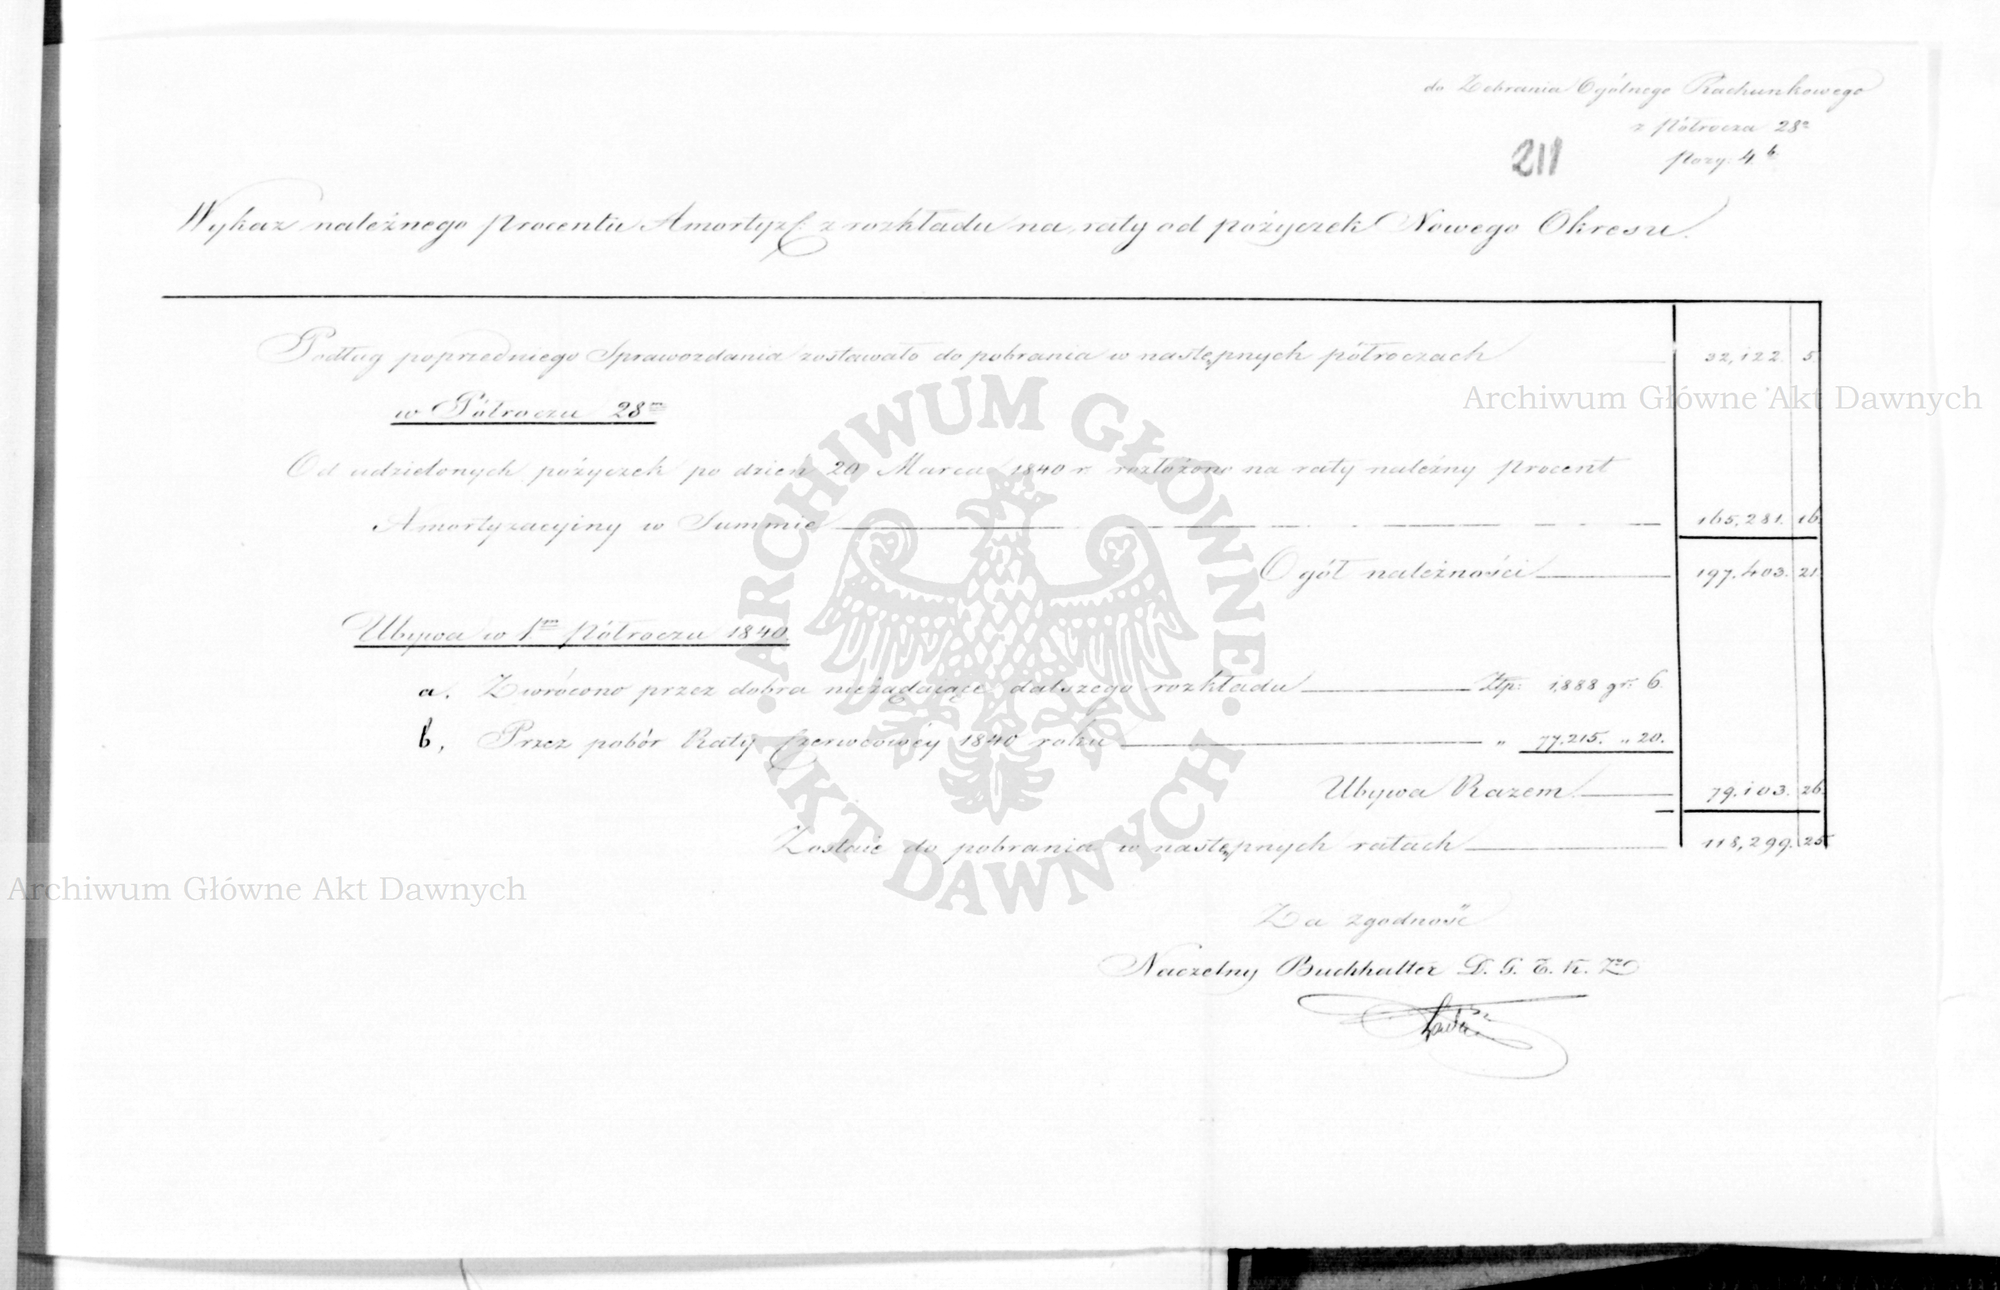 do Zebrania Ogólnego Rachunkowego
z Półrocza 28º
211
Pozy: 4 b
Wykaz należnego procentu Amortyz: z rozkładu na raty od pożyczek Nowego Okresu.
Podług poprzedniego Sprawozdania zostawało do pobrania w następnych półroczach 32,122 5
Archiwum Główne Akt Dawnych
w Półroczu 28m
Od udzielonych pożyczek po dzień 20 Marca 1840 r. rozłożono na raty należny procent
Amortyzacyjny w Summie 165,281. 16.
Ogół należności 197.403. 21.
Ubywa w 1m Półroczu 1840.
a. Zwrócono przez dobra nieżądające dalszego rozkładu Złp: 1,888 gr: 6.
b. Przez pobór Raty Czerwcowey 1840 roku " 77.215. " 20.
Ubywa Razem 79.103. 26.
Zostaie do pobrania w następnych ratach 118,299. 25.
ARCHIWUM GŁÓWNE AKT DAWNYCH
Archiwum Główne Akt Dawnych
Za zgodność
Naczelny Buchhalter D. G. T. K. Zo